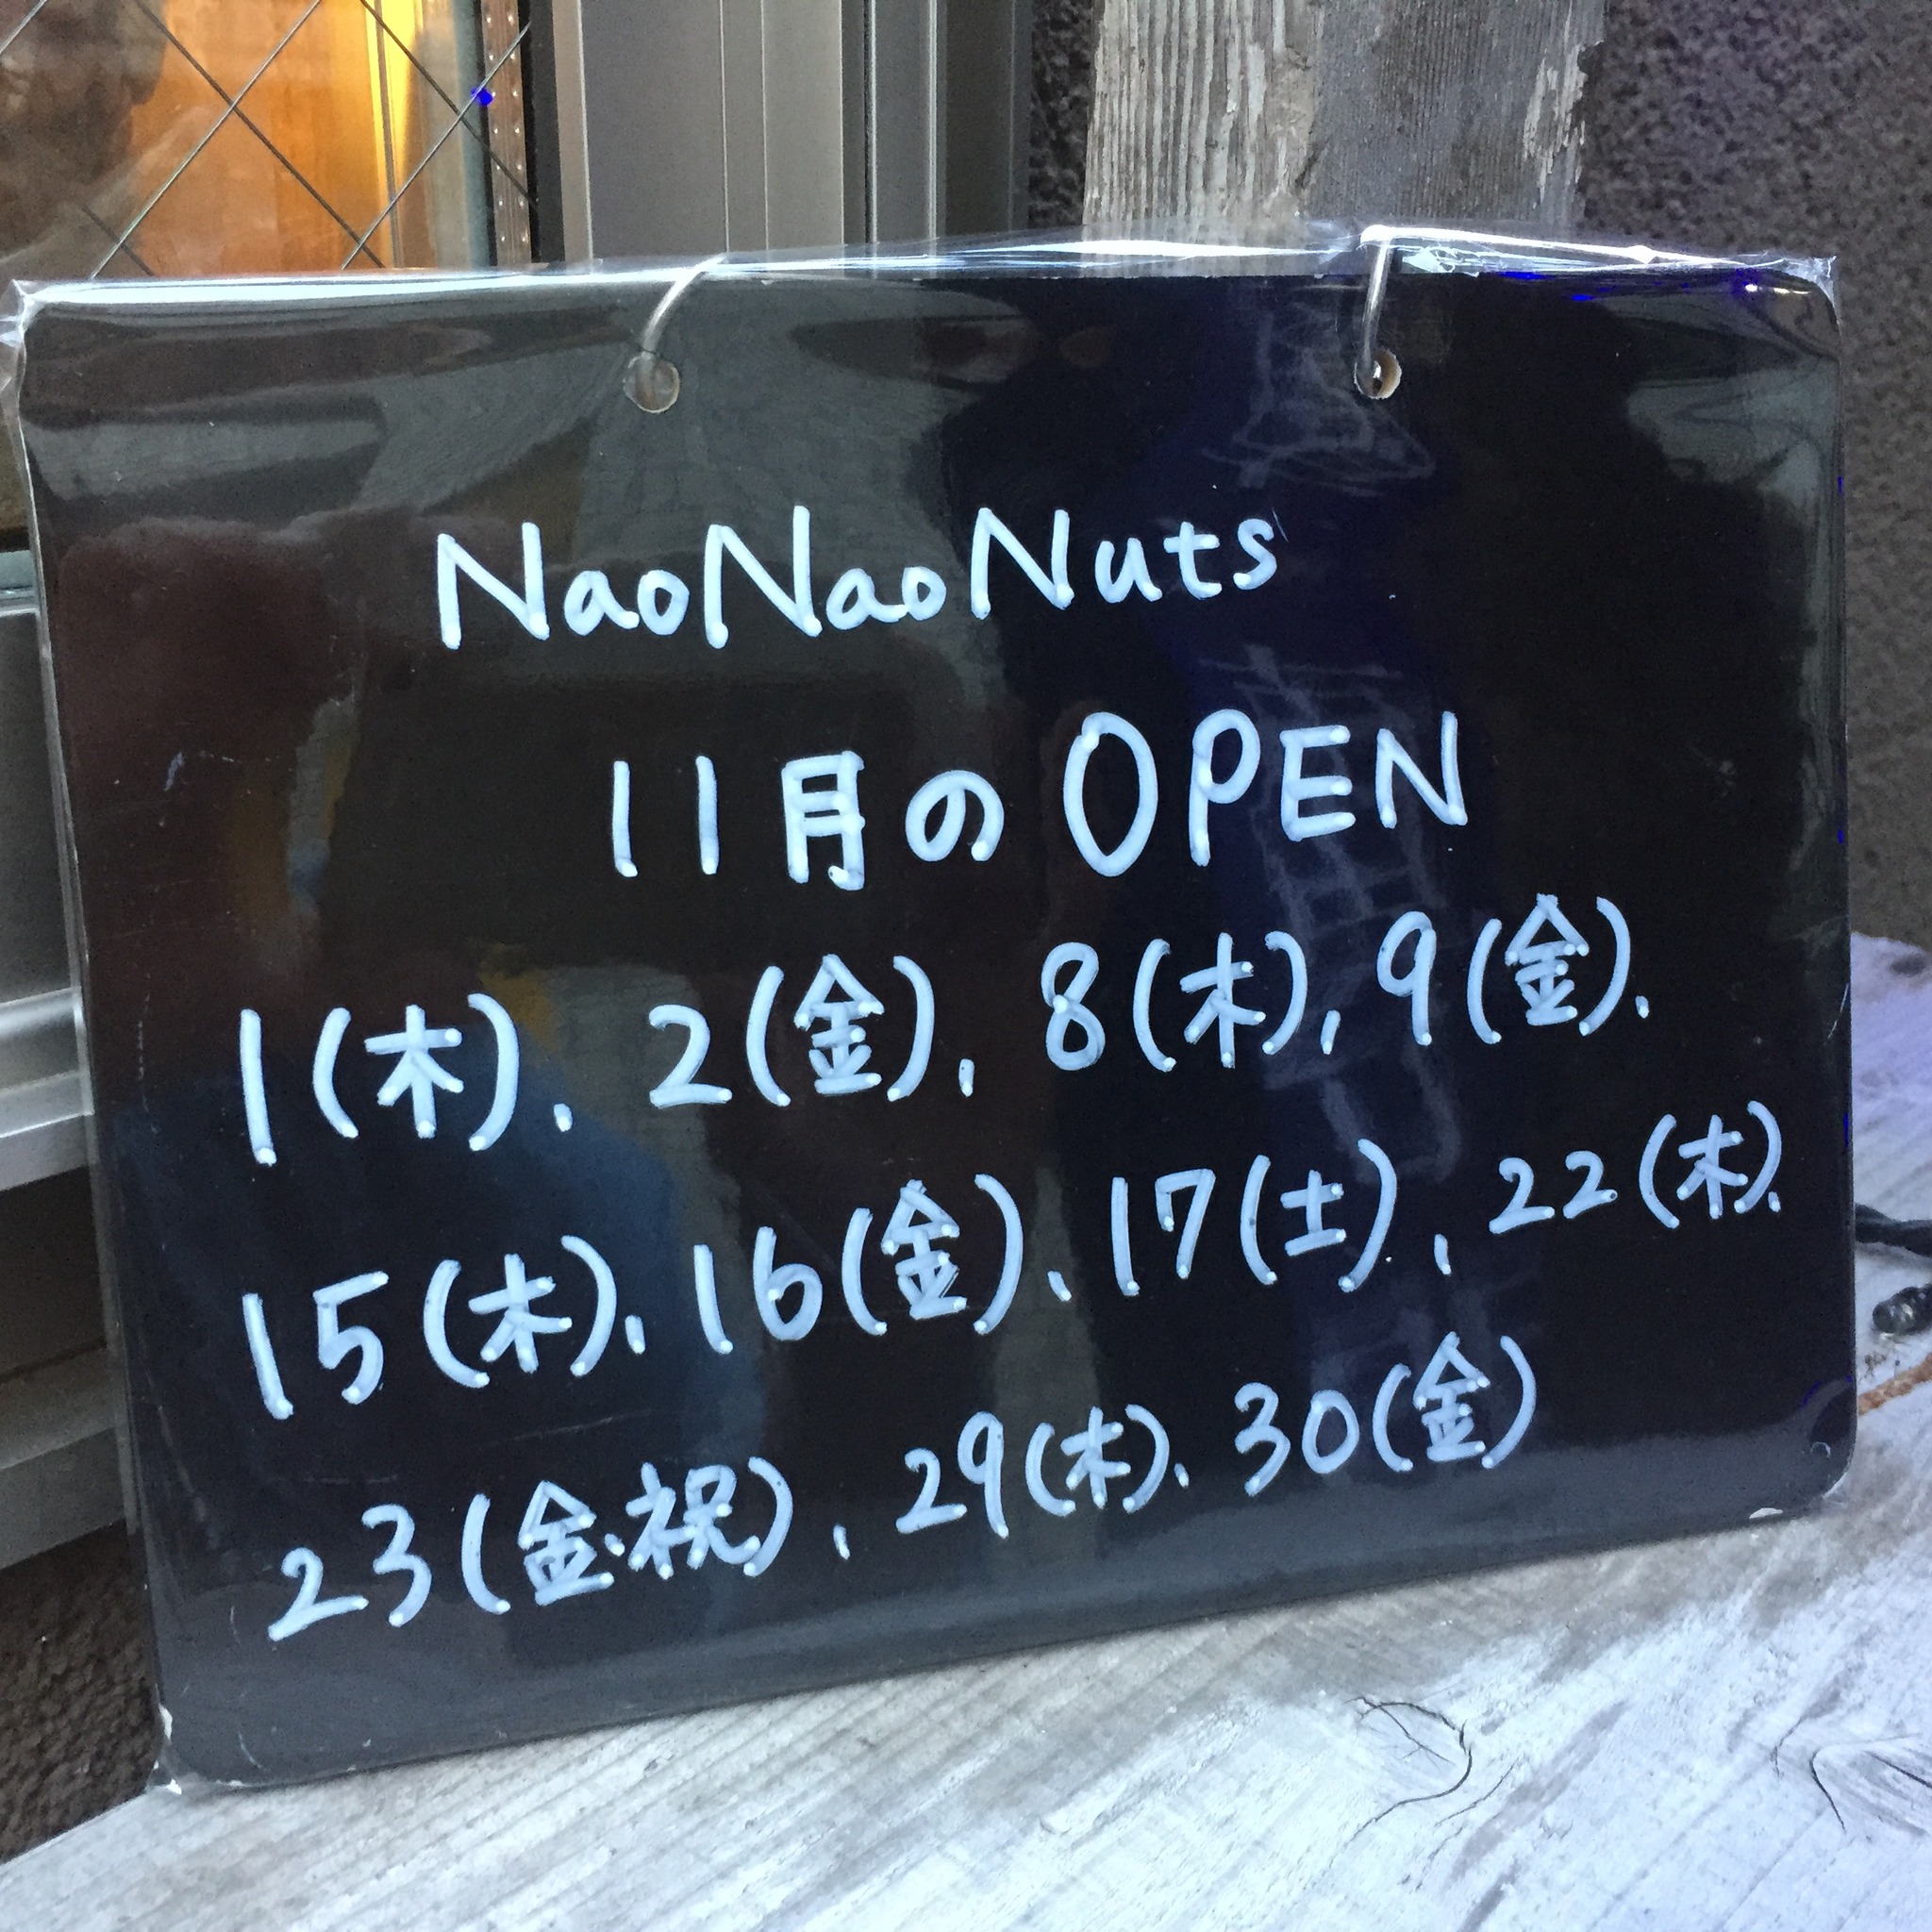 NaoNaoNuts
11月のOPEN
1(木)、2(金)、8(木)、9(金)、
15(木)、16(金)、17(土)、22(木)、
23(金・祝)、29(木)、30(金)